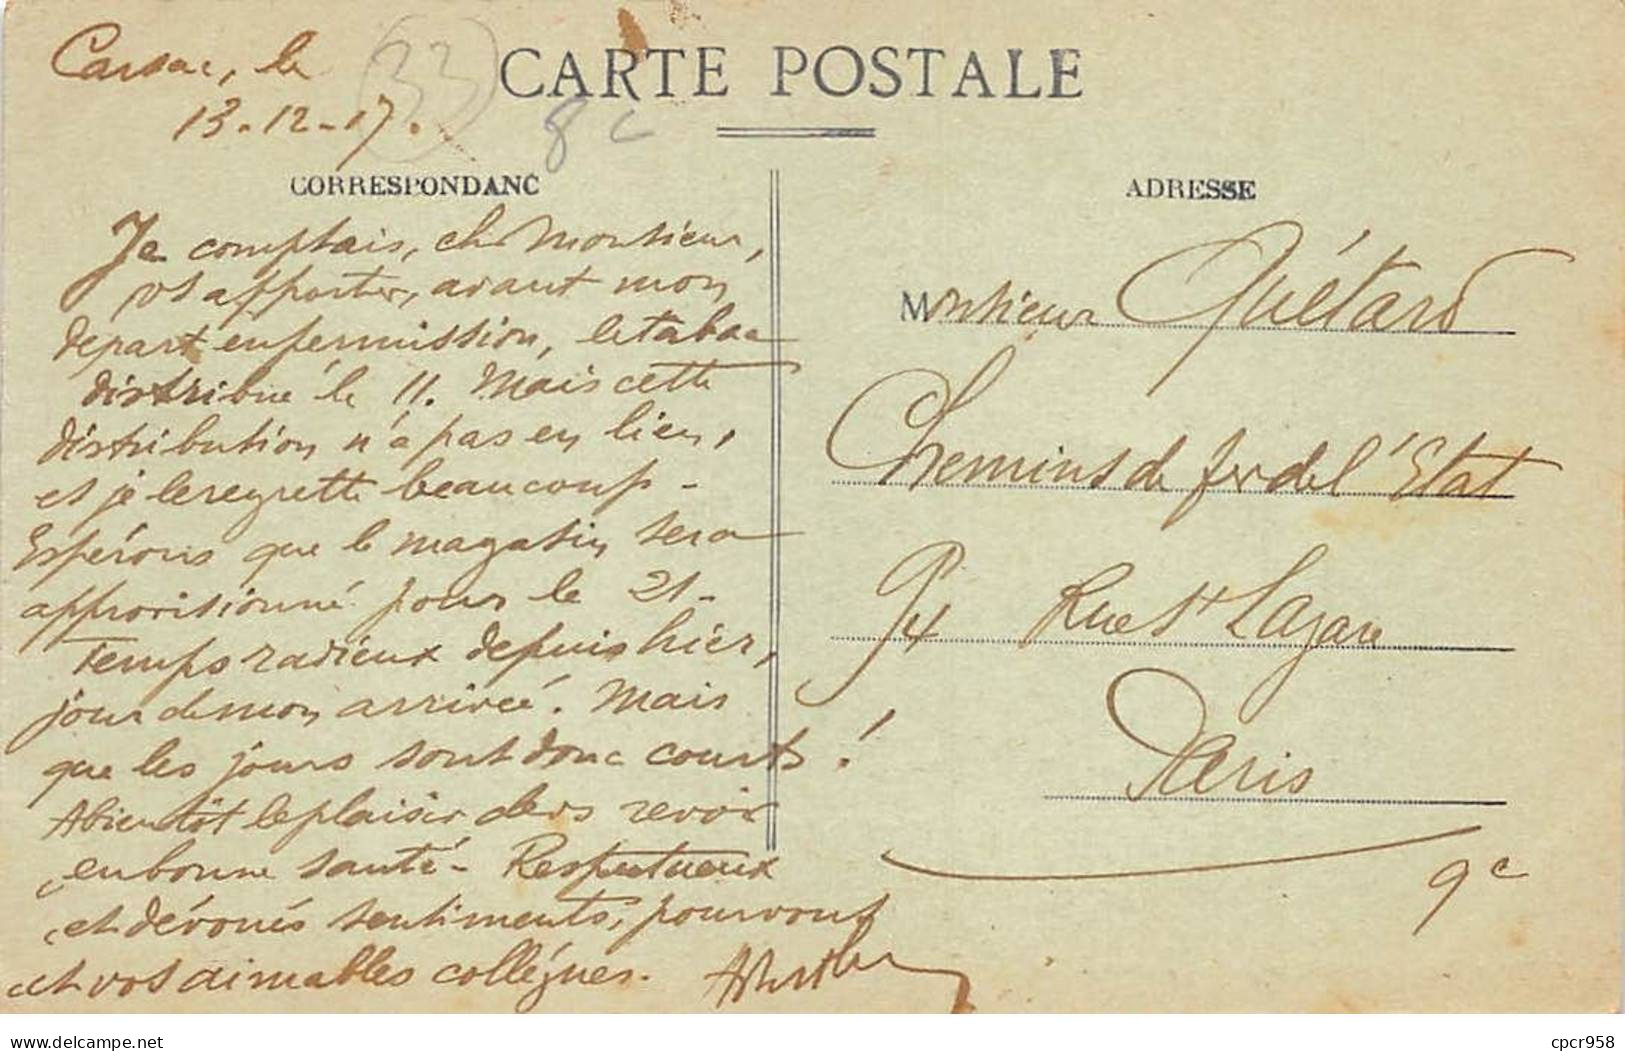 Carsac, le
13-12-17.
(33)
8c
CARTE POSTALE
CORRESPONDANC
ADRESSE
Je comptais, cher Monsieur,
vs apporter, avant mon
départ en permission, le tabac
distribué le 11. Mais cette
distribution n'a pas eu lieu,
et je le regrette beaucoup -
Espérons que le magasin sera
approvisionné pour le 21 -
Temps radieux depuis hier,
jour de mon arrivée. Mais
que les jours sont donc courts !
A bientôt le plaisir de vs revoir
en bonne santé - Respectueux
et dévoués sentiments, pour vous
et vos aimables collègues.
Monsieur Quétard
Chemins de fer de l'Etat
Rue St Lazare
Paris
9e
cpcr958